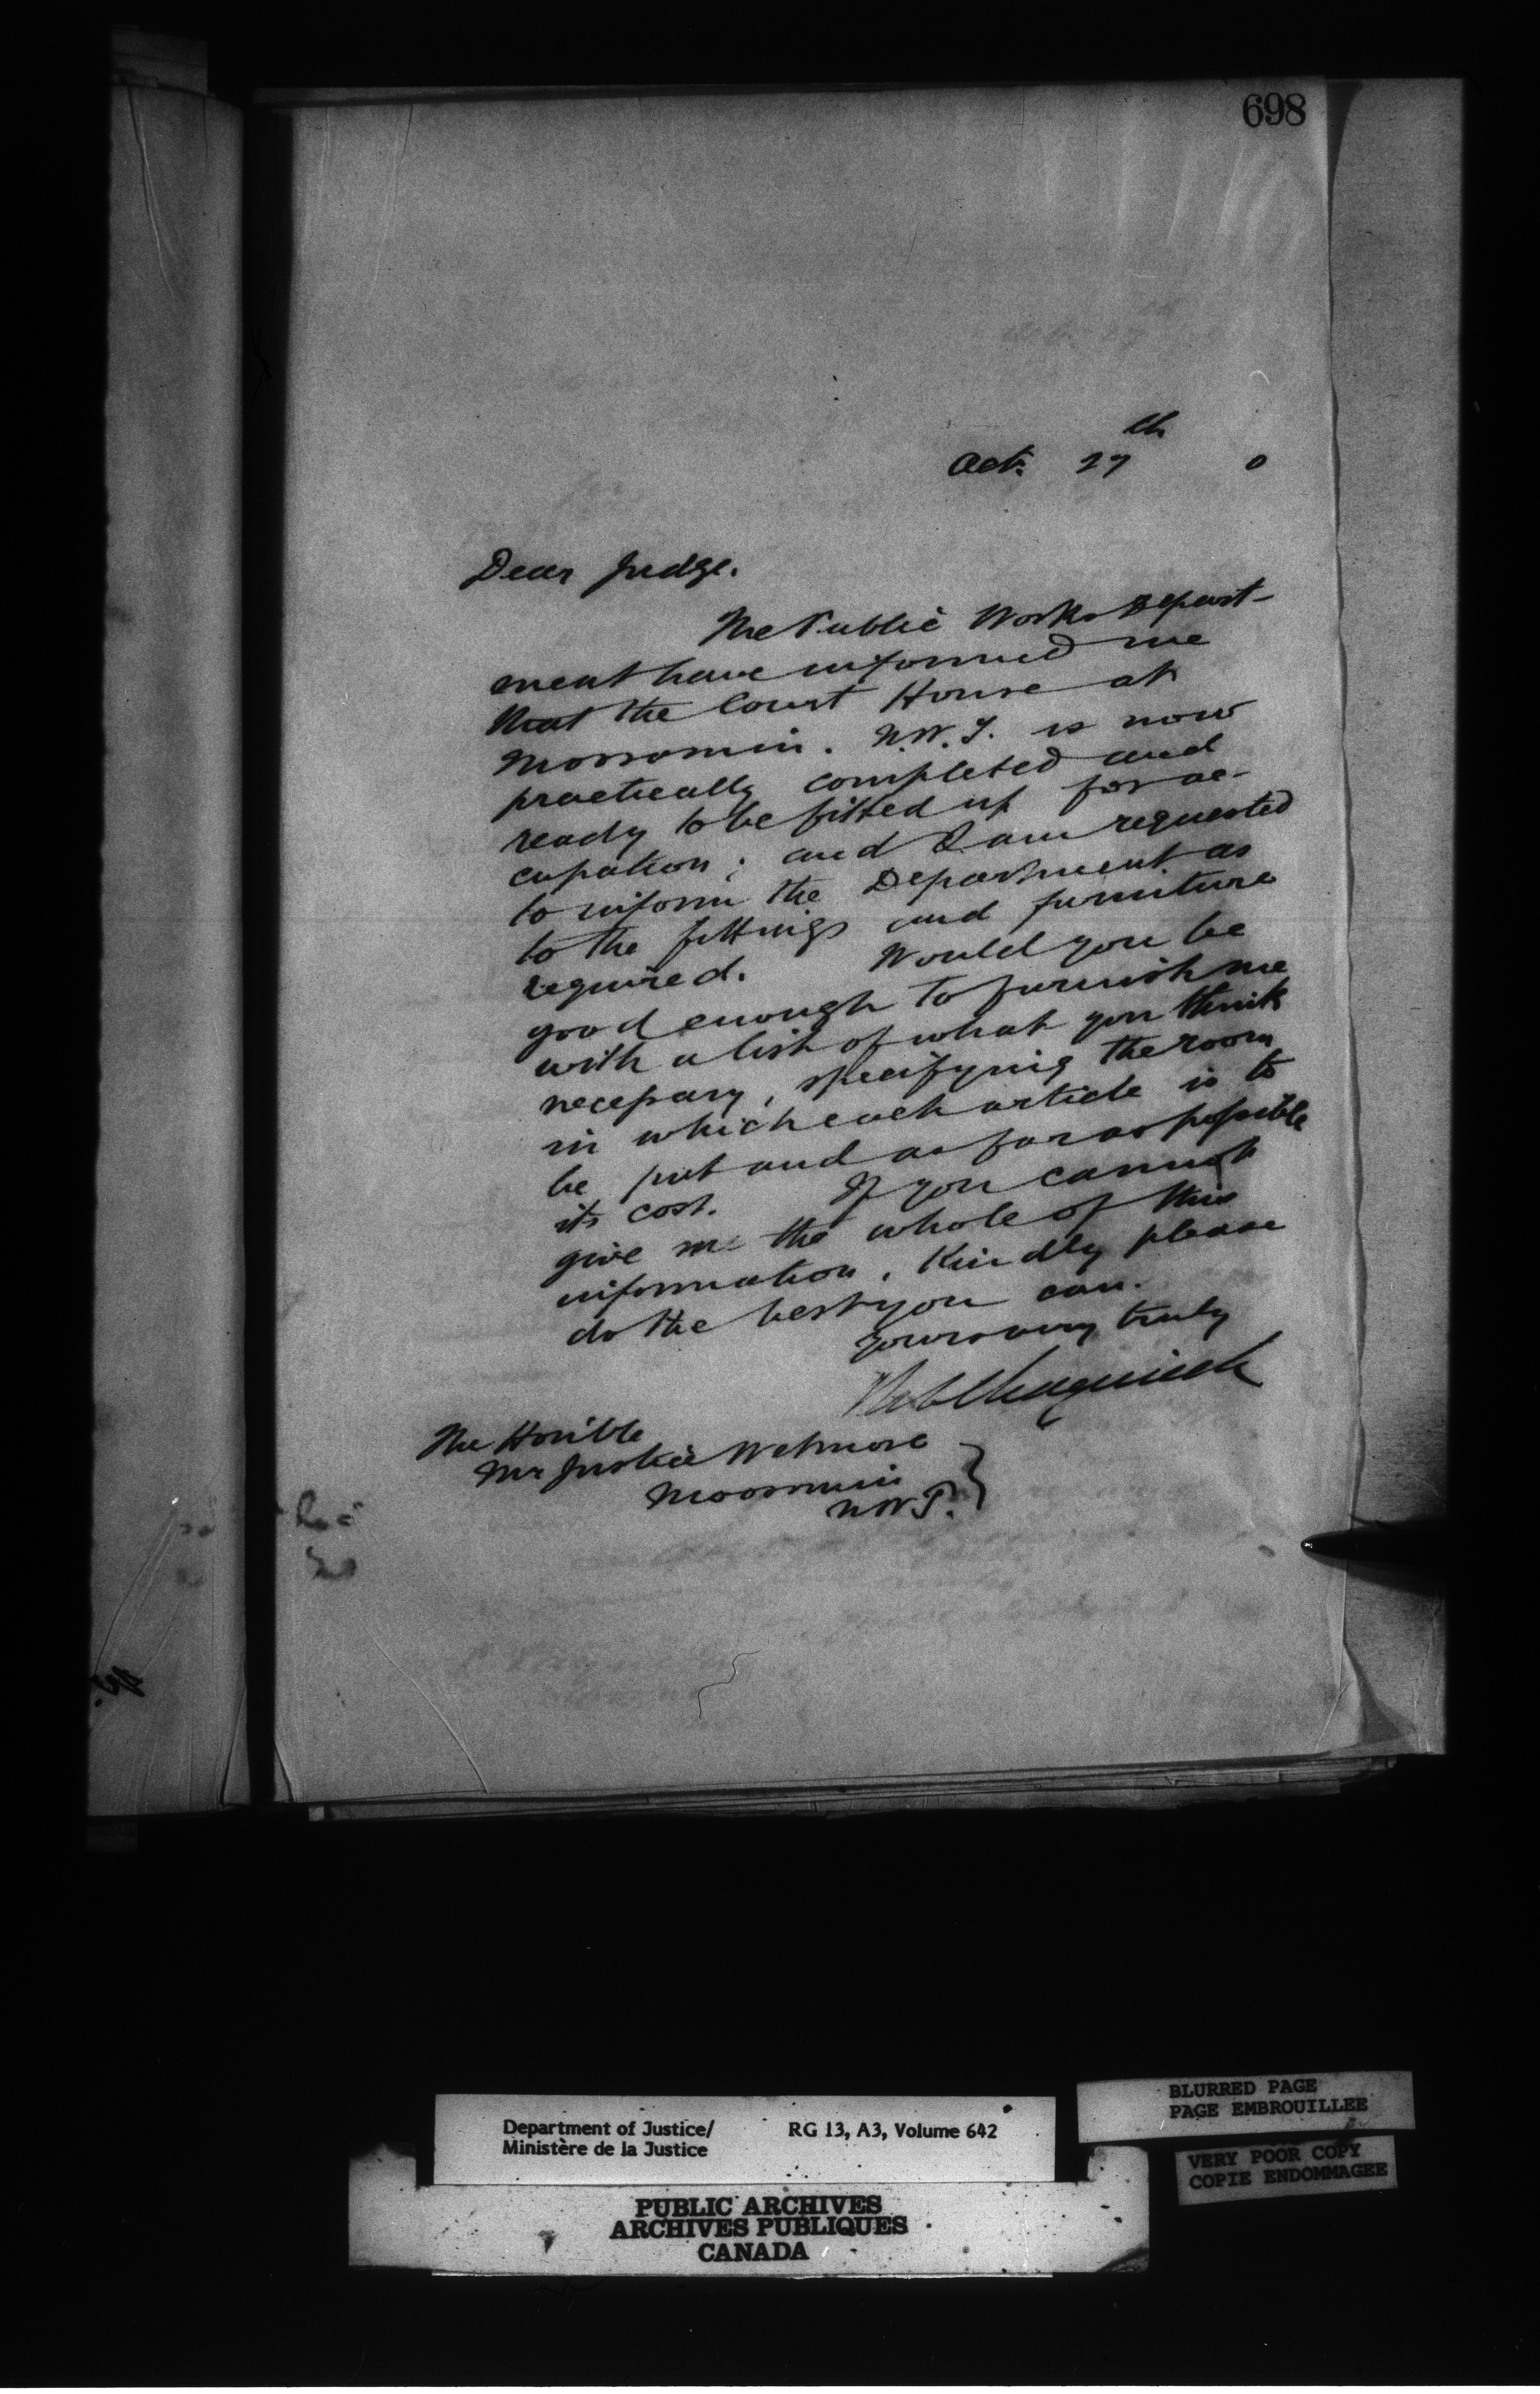 698
Oct. 27th 0
Dear Judge.
The Public Works Depart-
ment have informed me
that the Court House at
Moosomin. N.W.T. is now
practically completed and
ready to be fitted up for oc-
cupation; and I am requested
to inform the Department as
to the fittings and furniture
required. Would you be
good enough to furnish me
with a list of what you think
necessary, specifying the room
in which each article is to
be put and as far as possible
its cost. If you cannot
give me the whole of this
information, Kindly please
do the best you can.
Yours very truly
The Honble
Mr Justice Wetmore
Moosomin
N.W.T.
Department of Justice/ RG 13, A3, Volume 642
Ministère de la Justice
BLURRED PAGE
PAGE EMBROUILLEE
VERY POOR COPY
COPIE ENDOMMAGEE
PUBLIC ARCHIVES
ARCHIVES PUBLIQUES
CANADA